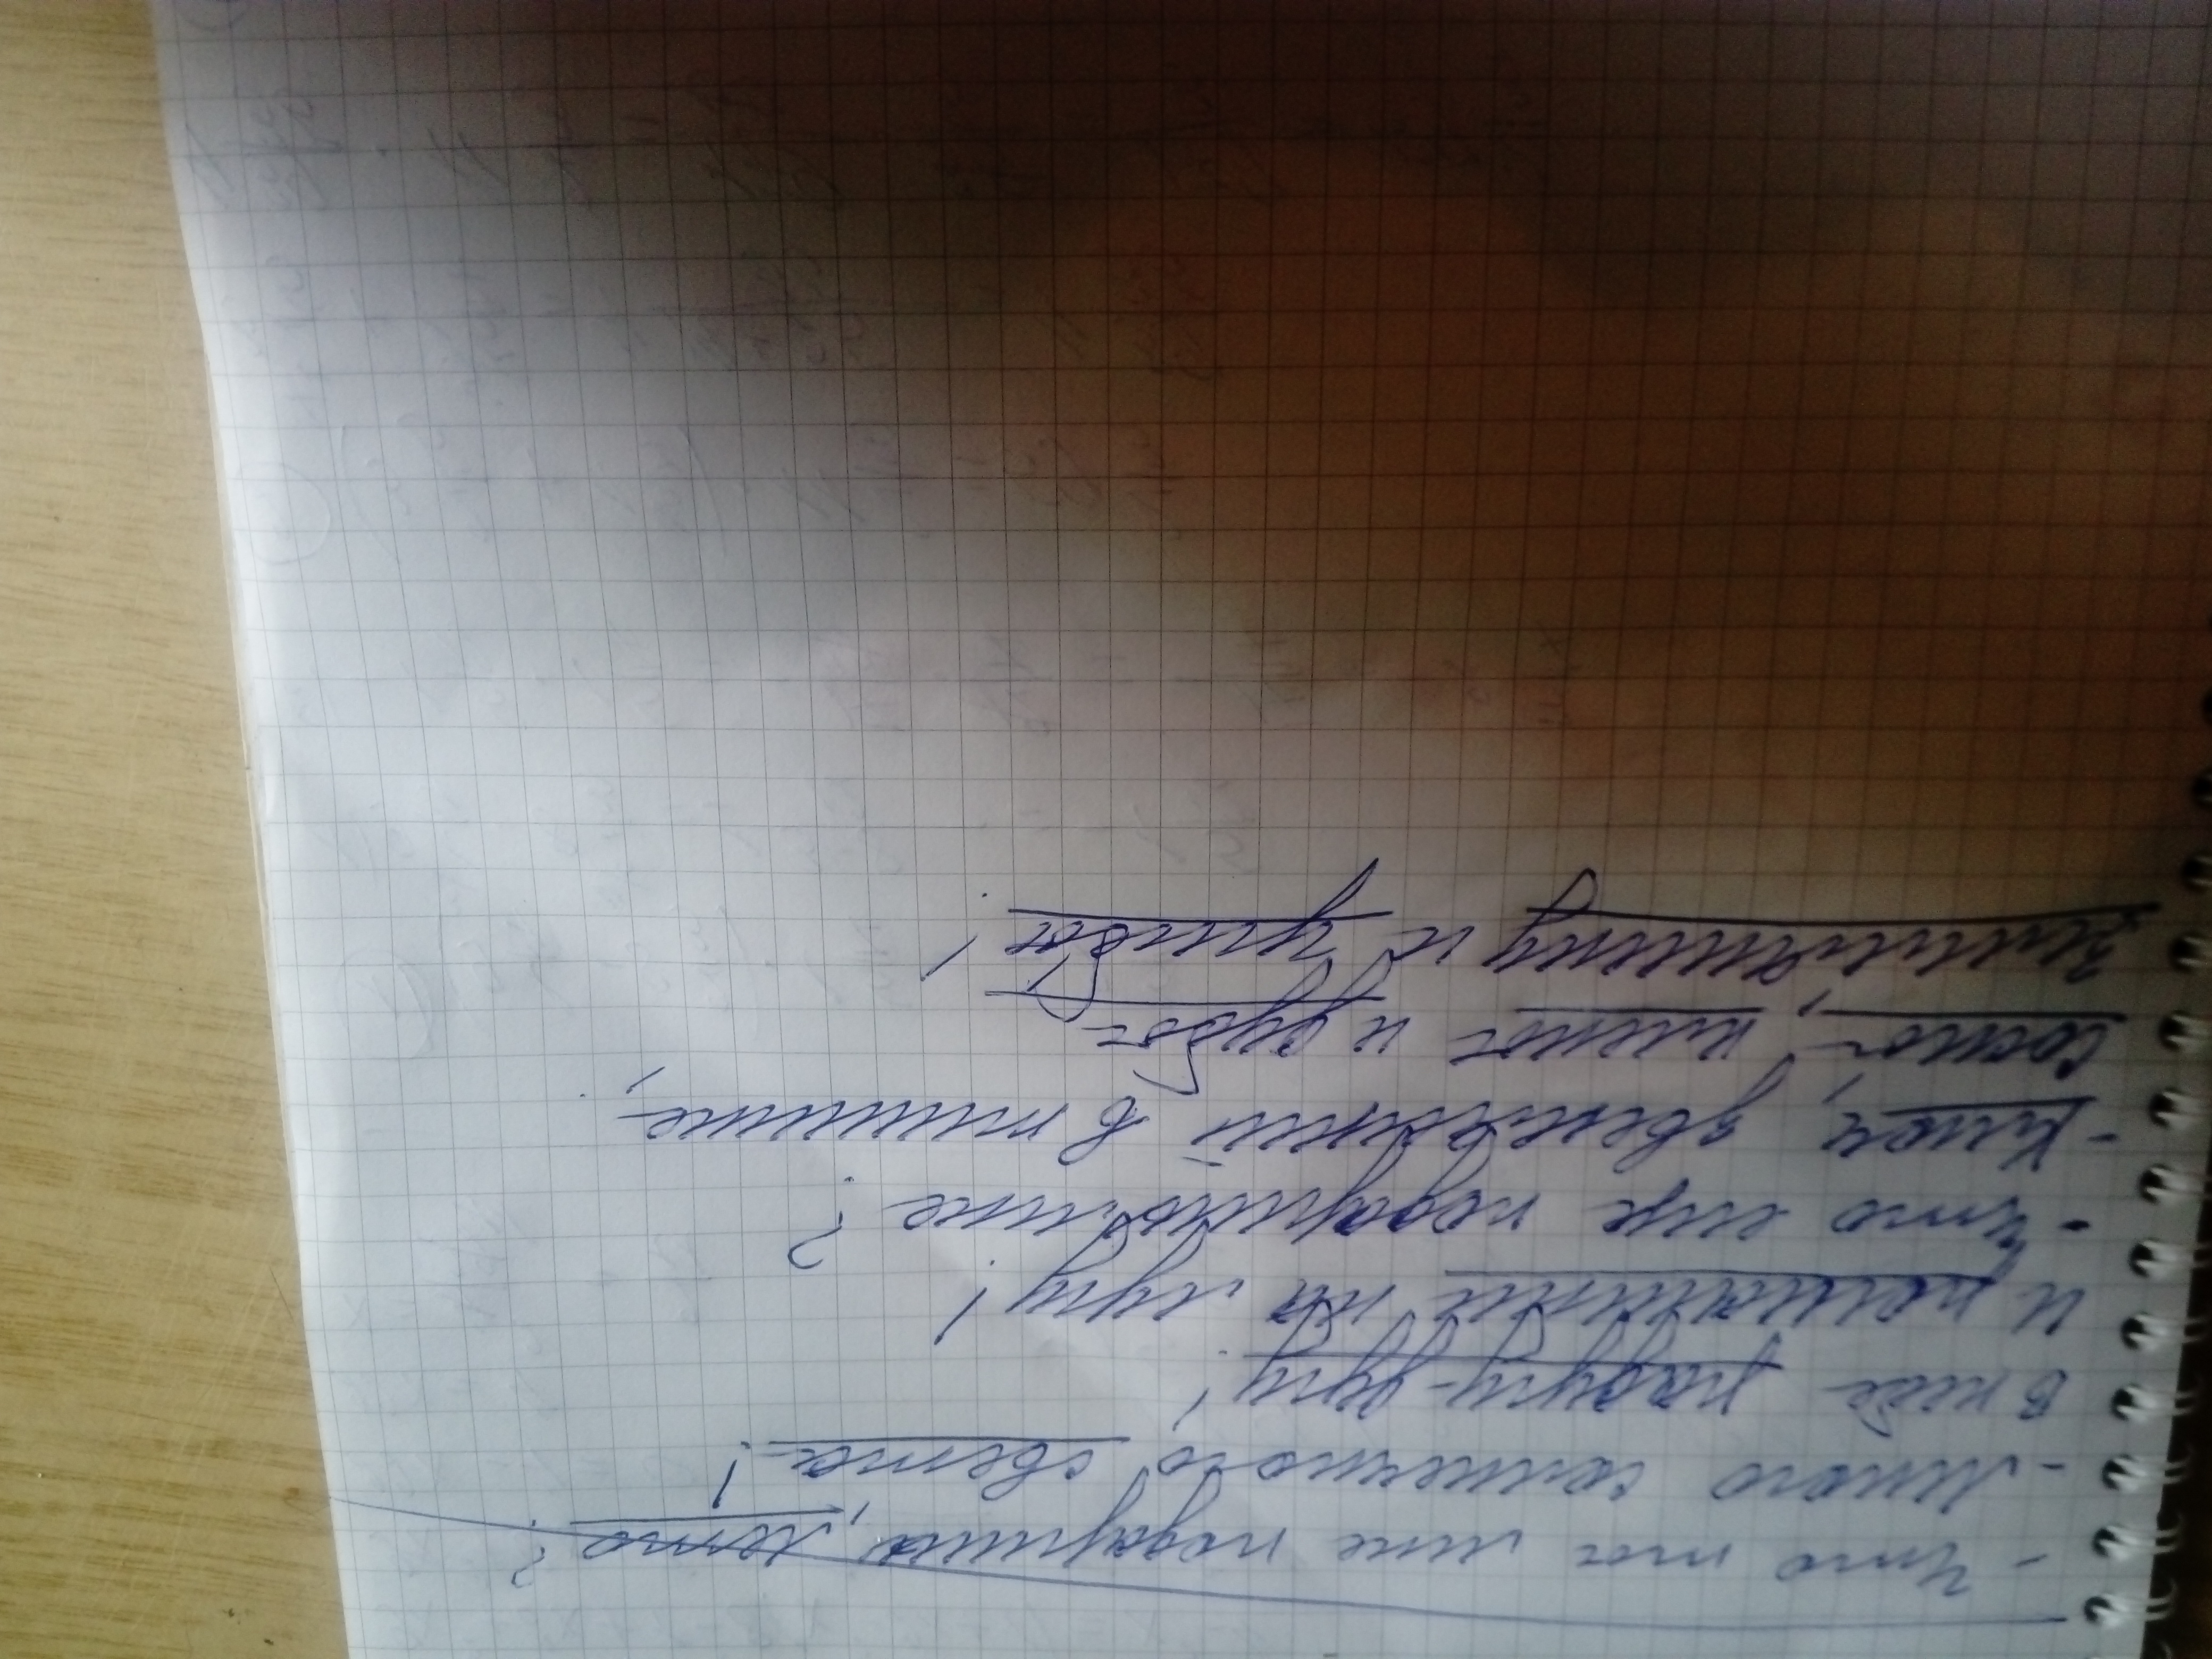 - Что ты мне подаришь, лето?
- Много солнечного света!
в небе радугу-дугу!
и ромашки на лугу!
- Что еще подаришь мне?
- Ключ, звенящий в тишине,
Сосны, клены и дубы
Землянику и грибы!